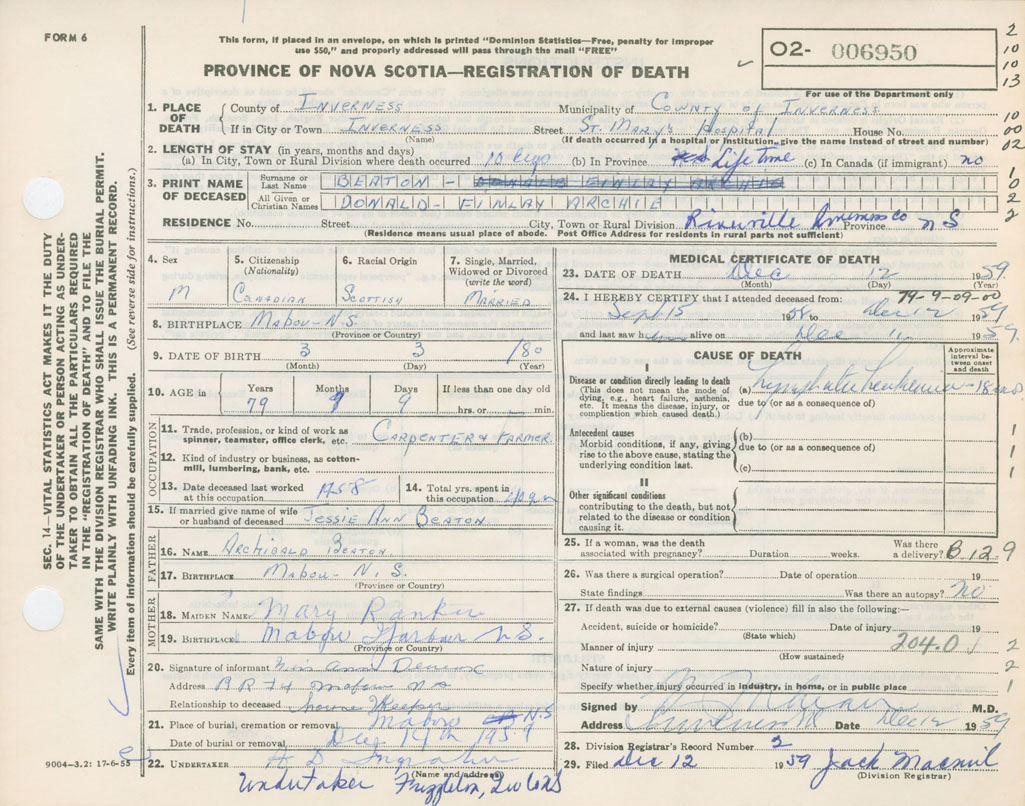 FORM 6
This form, if placed in an envelope, on which is printed "Dominion Statistics—Free, penalty for improper
use $50," and properly addressed will pass through the mail "FREE"
PROVINCE OF NOVA SCOTIA—REGISTRATION OF DEATH
O2- 006950
For use of the Department only
2
10
10
13
10
00
02
1
0
2
2
1. PLACE OF DEATH { County of INVERNESS Municipality of COUNTY OF INVERNESS
If in City or Town INVERNESS Street ST. MARY'S HOSPITAL House No.
(Name) (If death occurred in a hospital or institution, give the name instead of street and number)
2. LENGTH OF STAY (in years, months and days)
(a) In City, Town or Rural Division where death occurred 10 days (b) In Province Life Time (c) In Canada (if immigrant) no
3. PRINT NAME OF DECEASED { Surname or Last Name BEATON -
All Given or Christian Names DONALD - FINLAY ARCHIE
RESIDENCE No. Street City, Town or Rural Division Inverness Co Province N S
(Residence means usual place of abode. Post Office Address for residents in rural parts not sufficient)
4. Sex M
5. Citizenship (Nationality) CANADIAN
6. Racial Origin SCOTTISH
7. Single, Married, Widowed or Divorced (write the word) MARRIED
8. BIRTHPLACE MABOU - N.S.
(Province or Country)
9. DATE OF BIRTH 3 3 /80
(Month) (Day) (Year)
10. AGE in { Years 79 Months 9 Days 9 If less than one day old hrs. or min.
OCCUPATION
11. Trade, profession, or kind of work as spinner, teamster, office clerk, etc. CARPENTER & FARMER.
12. Kind of industry or business, as cotton-mill, lumbering, bank, etc.
13. Date deceased last worked at this occupation 1958
14. Total yrs. spent in this occupation
15. If married give name of wife or husband of deceased JESSIE ANN BEATON
FATHER
16. NAME ARCHIBALD BEATON.
17. BIRTHPLACE MABOU - N.S.
(Province or Country)
MOTHER
18. MAIDEN NAME Mary Rankin
19. BIRTHPLACE Mabou Harbour N.S.
(Province or Country)
20. Signature of informant Ann
Address R R #4 Mabou N S
Relationship to deceased House Keeper
21. Place of burial, cremation or removal Mabou N.S
Date of burial or removal Dec 14th 1959
22. UNDERTAKER A D Ingraham
(Name and address)
Undertaker
9004-3.2: 17-6-55
MEDICAL CERTIFICATE OF DEATH
23. DATE OF DEATH Dec 12 1959.
(Month) (Day) (Year)
24. I HEREBY CERTIFY that I attended deceased from: 79-9-09-00
Sept. 15 1958 to Dec 12 1959
and last saw him alive on Dec 11 1959.
CAUSE OF DEATH
Approximate interval between onset and death
I
Disease or condition directly leading to death
(This does not mean the mode of dying, e.g., heart failure, asthenia, etc. It means the disease, injury, or complication which caused death.)
(a) Lymphatic Leukemia - 18 mo.
due to (or as a consequence of)
Antecedent causes
Morbid conditions, if any, giving rise to the above cause, stating the underlying condition last.
(b)
due to (or as a consequence of)
(c)
1
1
1
II
Other significant conditions
contributing to the death, but not related to the disease or condition causing it.
25. If a woman, was the death associated with pregnancy? Duration weeks. Was there a delivery? B.12.9
26. Was there a surgical operation? Date of operation 19
State findings Was there an autopsy? no
27. If death was due to external causes (violence) fill in also the following:—
Accident, suicide or homicide? Date of injury 19
(State which)
Manner of injury 204.0
(How sustained)
Nature of injury
Specify whether injury occurred in industry, in home, or in public place
2
2
1
Signed by M.D.
Address Inverness Date Dec 12 1959
28. Division Registrar's Record Number 2
29. Filed Dec 12 1959 Jack Macneil
(Division Registrar)
SEC. 14—VITAL STATISTICS ACT MAKES IT THE DUTY
OF THE UNDERTAKER OR PERSON ACTING AS UNDER-
TAKER TO OBTAIN ALL THE PARTICULARS REQUIRED
IN THE "REGISTRATION OF DEATH" AND TO FILE THE
SAME WITH THE DIVISION REGISTRAR WHO SHALL ISSUE THE BURIAL PERMIT.
WRITE PLAINLY WITH UNFADING INK. THIS IS A PERMANENT RECORD.
Every item of information should be carefully supplied. (See reverse side for instructions.)